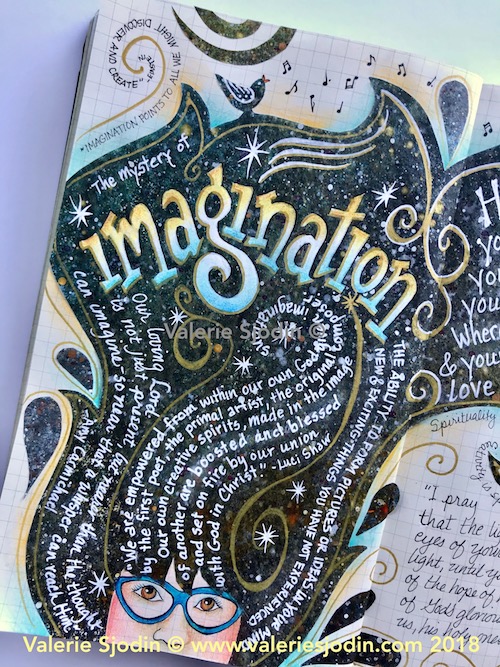 "IMAGINATION POINTS TO ALL WE MIGHT DISCOVER AND CREATE"
The mystery of
imagination
Our loving Lord
is not just present, but nearer than the thought
can imagine - so near that a whisper can reach Him.
Amy Carmichael
"We are empowered from within our own God-
by the first poet, the primal artist, the original Composer.
Our own creative spirits, made in the image
of another are boosted and blessed
and set on fire by our union
with God in Christ." -Luci Shaw
THE ABILITY TO FORM PICTURES OR IDEAS IN YOUR MIND
NEW & EXCITING THINGS YOU HAVE NOT EXPERIENCED
H
yo
you
you
Whe
& you
Love
Spirituality
"I pray
that the li
eyes of you
light, until y
of the hope of h
of God's glorio
us, his
Valerie Sjodin ©
Valerie Sjodin © www.valeriesjodin.com 2018